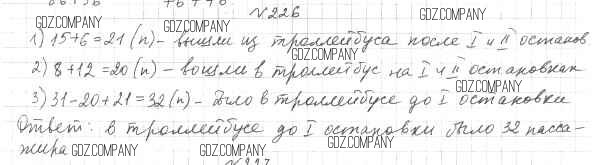 №226
GDZ.COMPANY GDZ.COMPANY
1) 15+6=21 (п) - вышли из троллейбуса после I и II останов.
GDZ.COMPANY
2) 8+12=20 (п) - вошли в троллейбус на I и II остановках
GDZ.COMPANY
3) 31-20+21=32 (п) - было в троллейбусе до I остановки
Ответ: в троллейбусе до I остановки было 32 пасса-
жира GDZ.COMPANY GDZ.COMPANY GDZ.COMPANY
№227